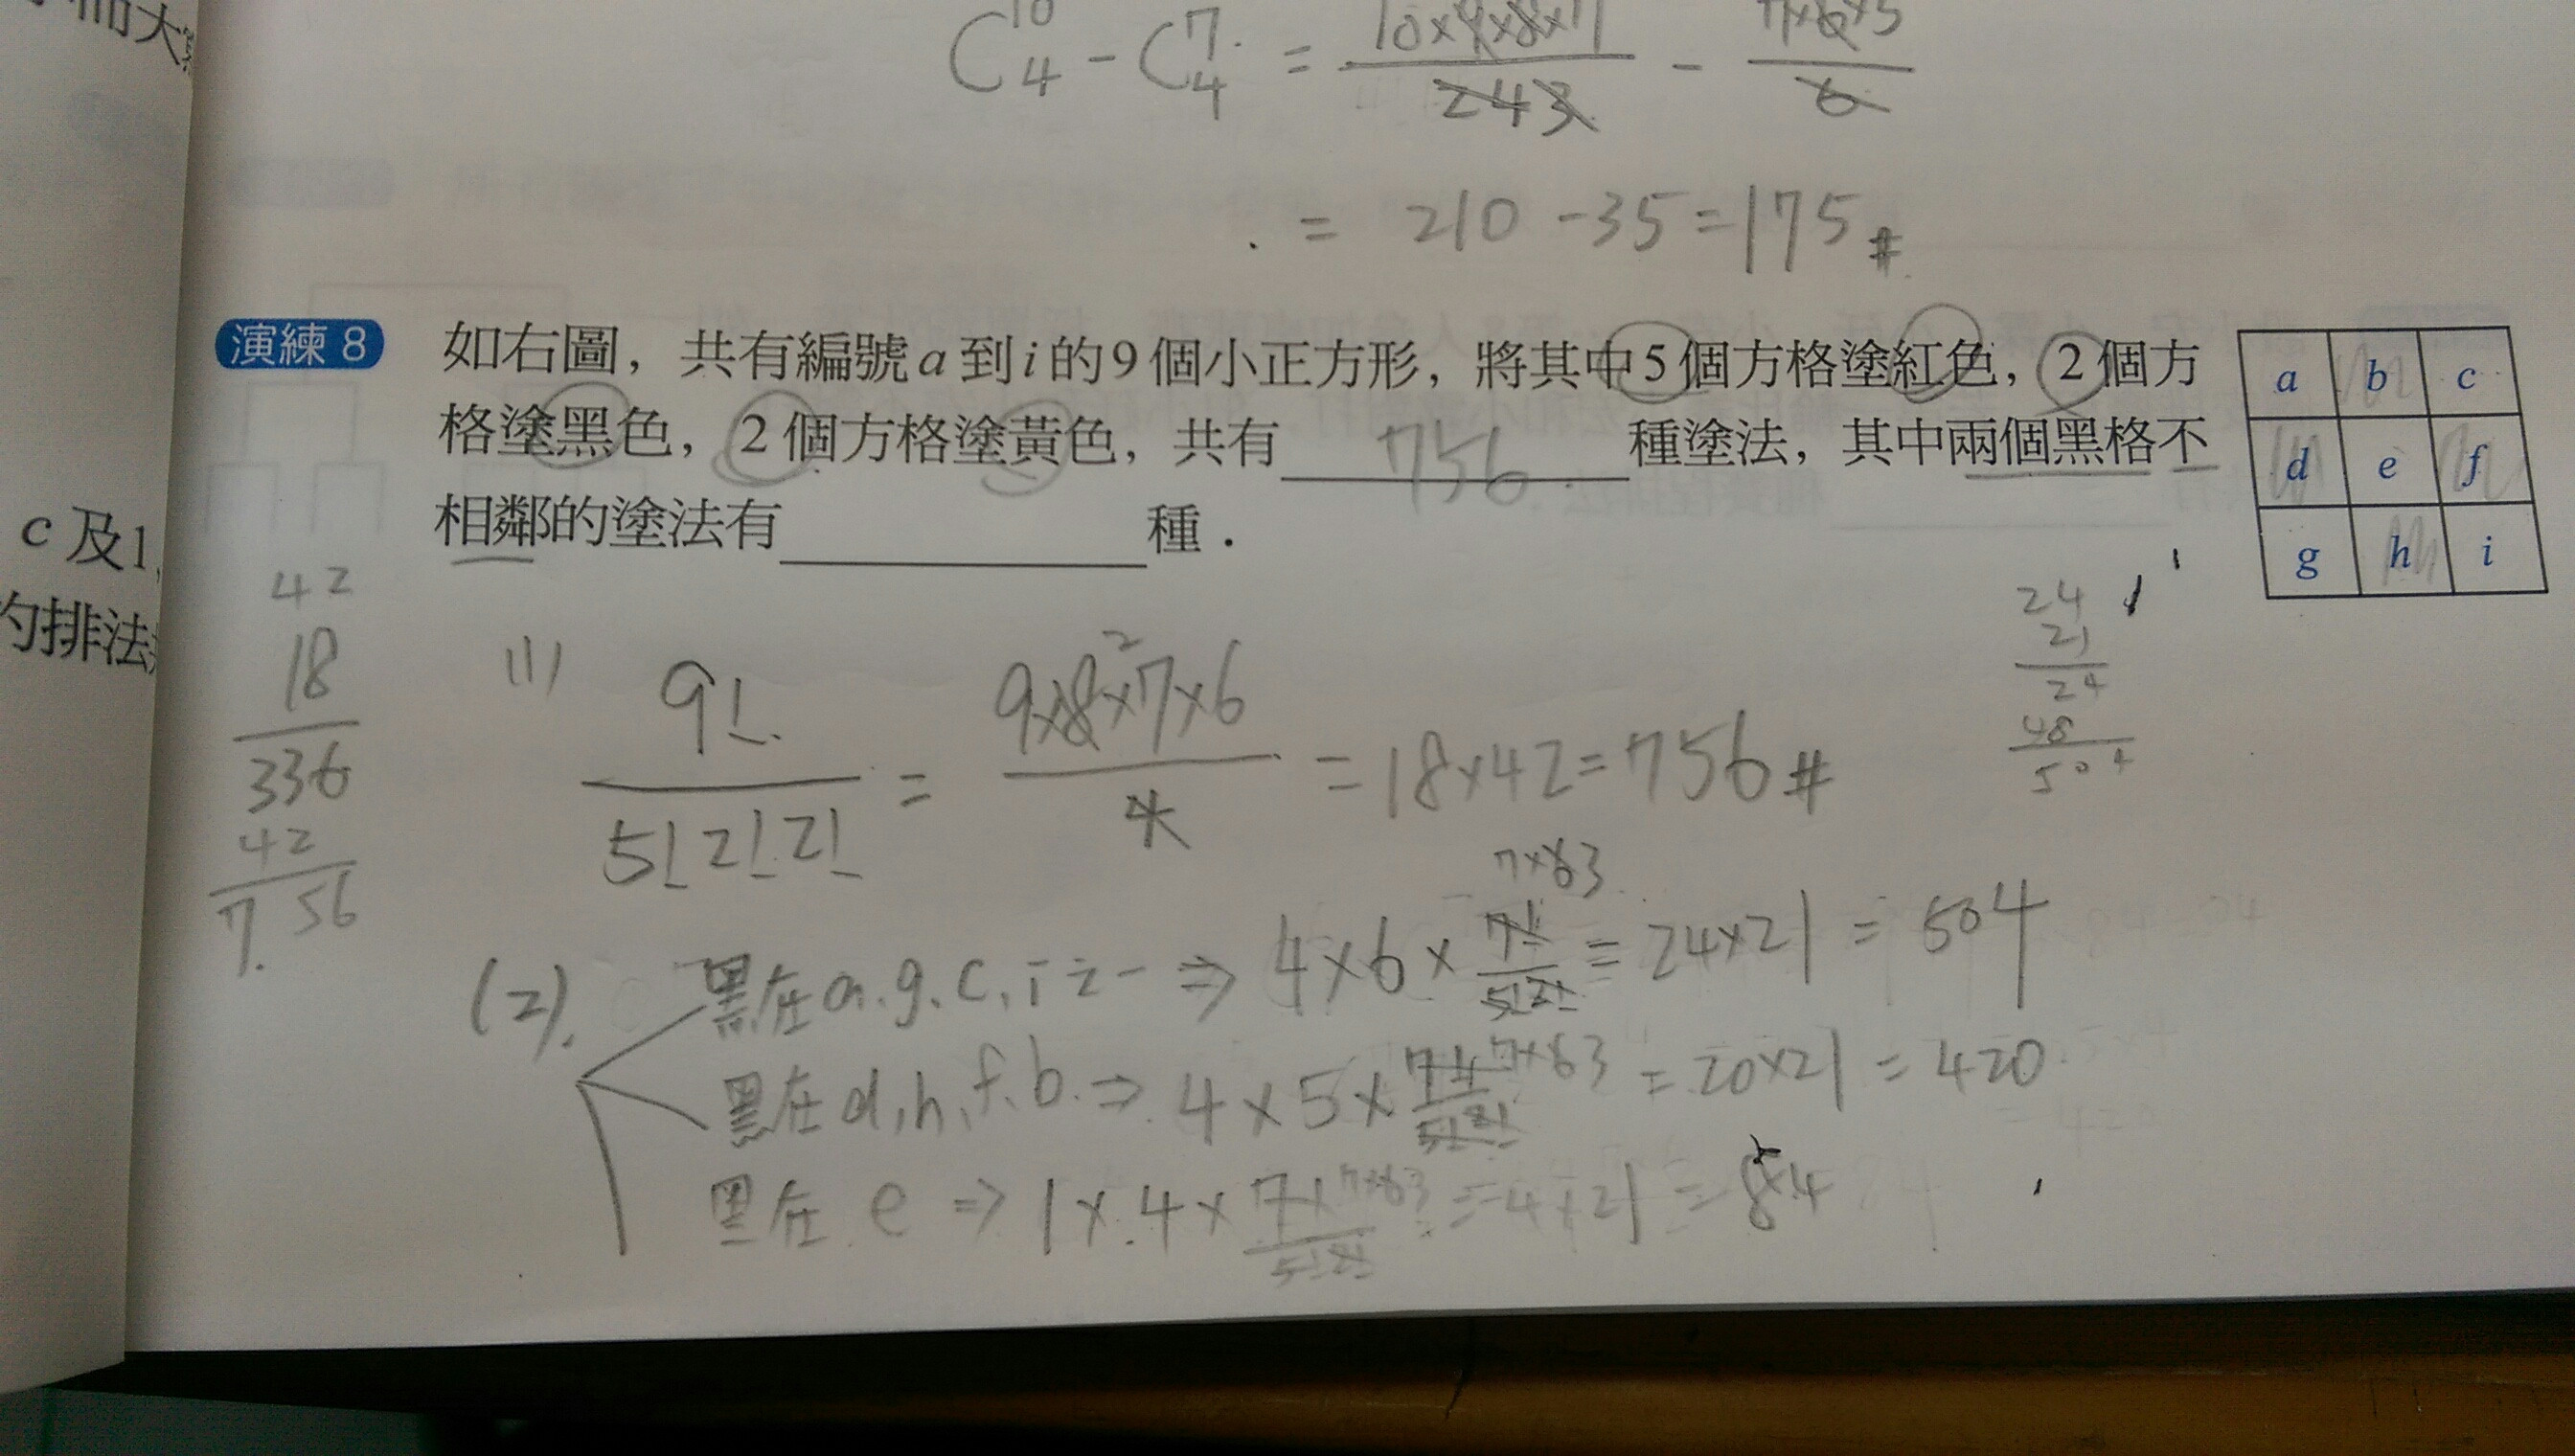 而大
C 10 4 - C 7 4 = 10×9×8×7 / 243 - 7×6×5 / 6
= 210 - 35 = 175 #
演練 8 如右圖，共有編號a到i的9個小正方形，將其中5個方格塗紅色，2個方
格塗黑色，2個方格塗黃色，共有 756 種塗法，其中兩個黑格不
相鄰的塗法有 種．
a b c
d e f
g h i
c 及1,
的排法
42
18
336
42
756
24
21
24
48
504
(1) 9! / 5!2!2! = 9×8×7×6 / 4 = 18×42 = 756 #
2
(2). 黑在a.g.c.i之一 ⇒ 4×6× 7! / 5!2! 7×63 = 24×21 = 504
黑在d,h,f.b. ⇒ 4×5× 7! / 5!2! 7×63 = 20×21 = 420
黑在 e ⇒ 1×4× 7! / 5!2! 7×63 = 4×21 = 84